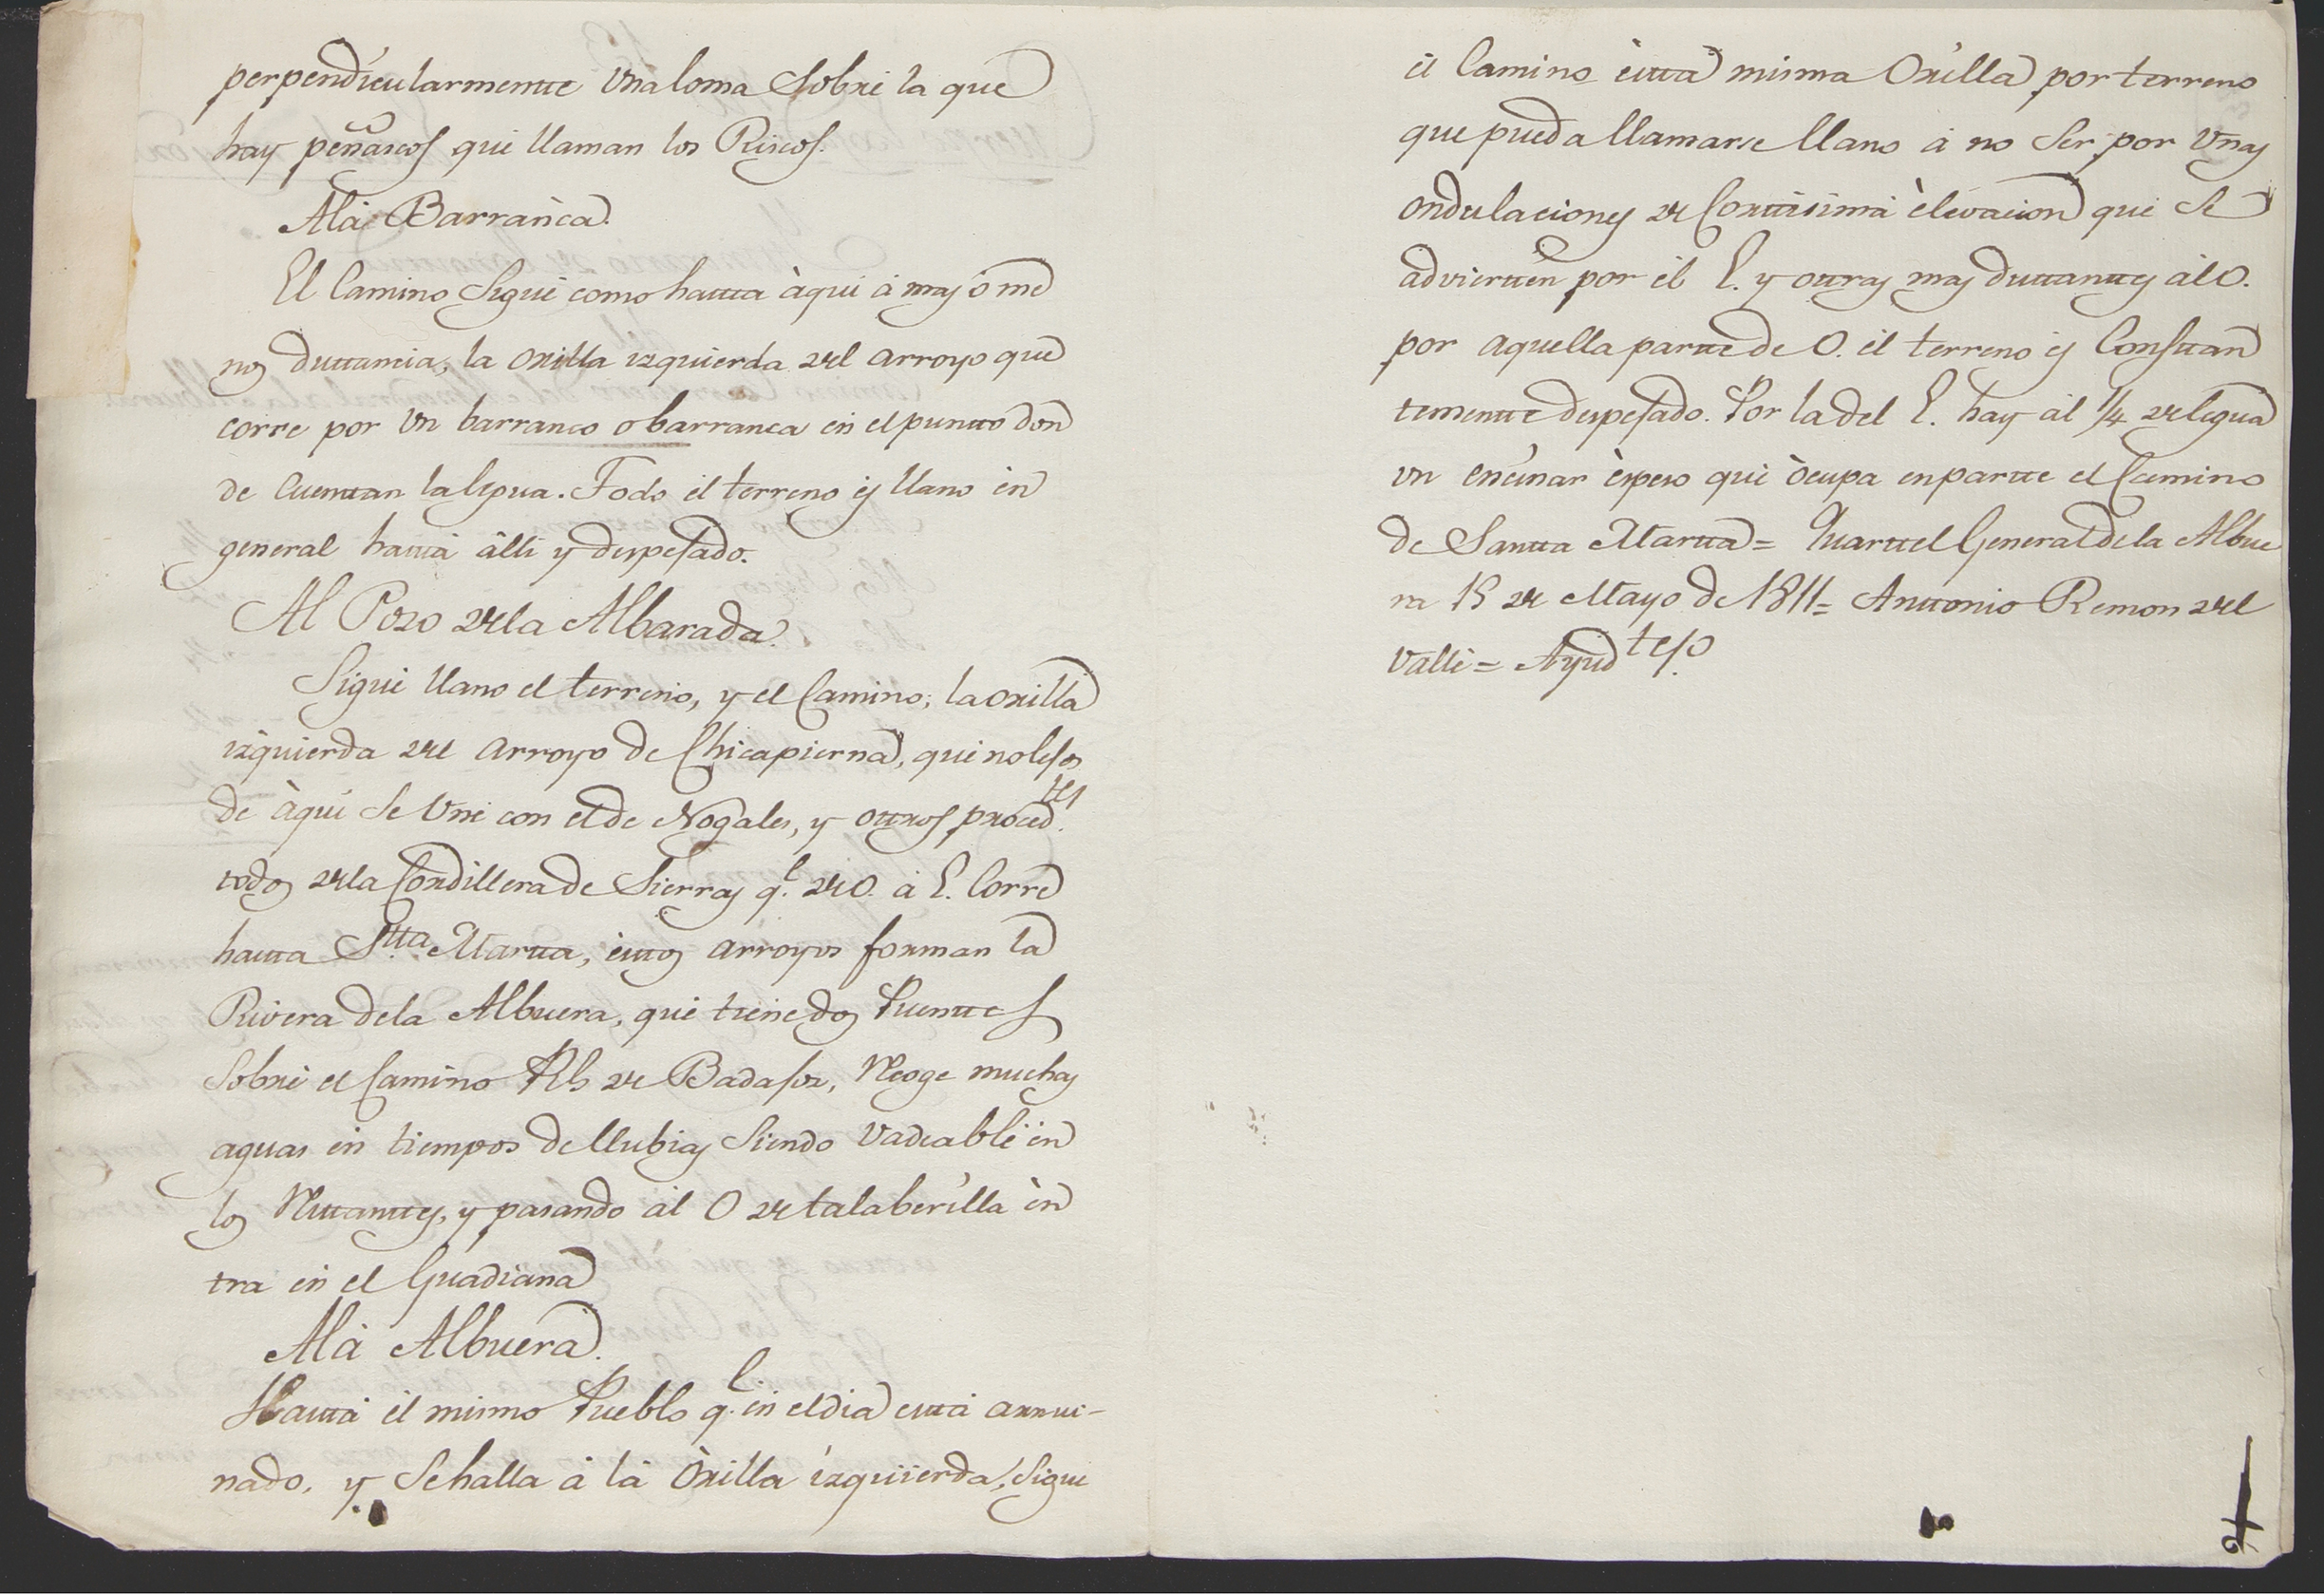 perpendicularmente Una loma Sobre la que
hay peñascos que llaman los Riscos.
A la Barranca.
El Camino Sigue como hasta àqui á mas ó me
nos distancia, la orilla izquierda del arroyo que
corre por Un barranco o barranca en el punto don
de Cuentan la legua. Todo él terreno es llano èn
general hasta âlli y despejado.
Al Pozo dela Albarada.
Sigue llano el terreno, y el Camino, la orilla
izquierda del arroyo de Chicapierna, que no lejos
de àqui se Une con el de Nogales, y otros proced.tes
todos dela Cordillera de Sierras q.e de O. á E. Corre
hasta S.tta Marta, estos arroyos forman la
Rivera dela Albuera, que tiene dos Puentes
Sobre el Camino Rl de Badajoz, Recoge muchas
aguas en tiempos de llubias Siendo Vadeable èn
los Restantes, y pasando al O de talaberilla èn
tra en el Guadiana
A la Albuera.
Hasta él mismo Pueblo q.e en el dia está arrui-
nado, y Se halla á la Orilla izquierda, Sigue
él Camino èsta misma Orilla por terreno
que pueda llamarse llano á no Ser por Unas
ondulaciones de Cortisima èlevacion que Se
advierten por él E. y otras mas distantes ál O.
por aquella parte de O. él terreno es Constan
temente despejado. Por la del E. hay ál 1/4 de legua
un encinar èspeso que òcupa en parte el Camino
de Santa Marta = Quartel General de la Albue
ra 15 de Mayo de 1811 = Antonio Remon del
Valle = Ayud.te